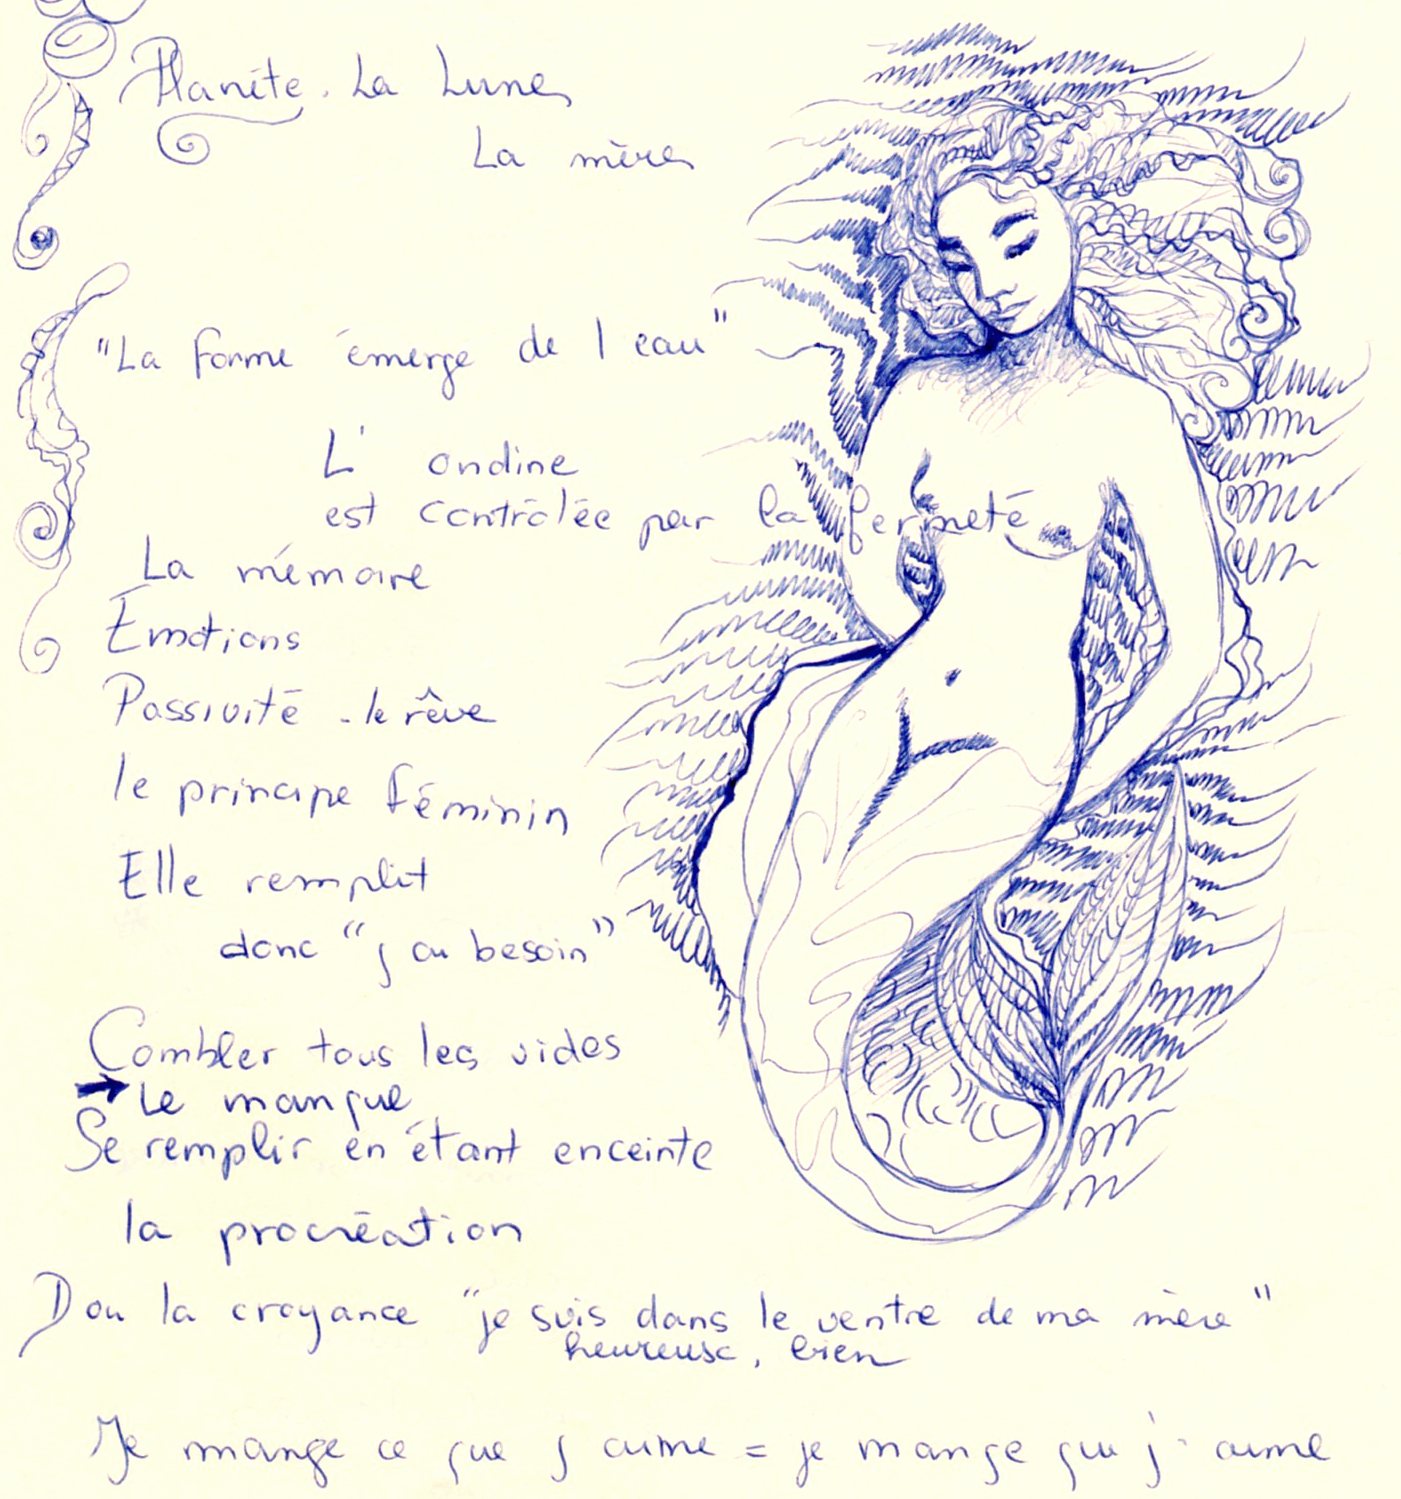 Planète. La Lune
La mère
"La forme émerge de l eau"
L' ondine
est contrôlée par la fermeté
La mémoire
Émotions
Passivité - le rêve
le principe féminin
Elle remplit
donc "j ai besoin"
Combler tous les vides
→ Le manque
Se remplir en étant enceinte
la procréation
Dou la croyance "je suis dans le ventre de ma mère"
heureuse, bien
Je mange ce que j aime = je mange qui j' aime